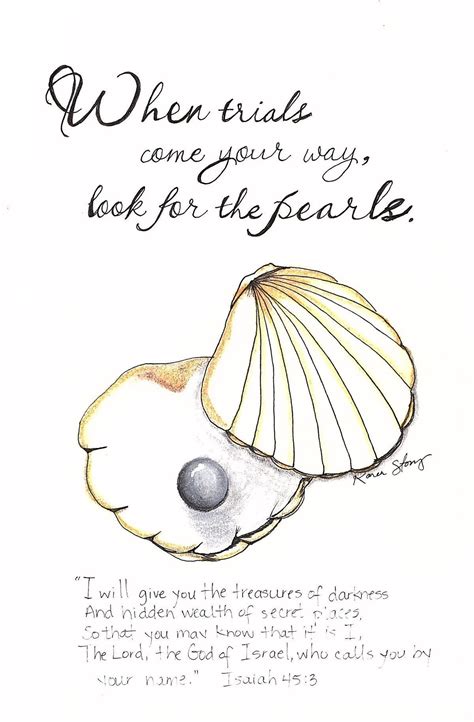 When trials
come your way,
look for the pearls.
Karen Story
"I will give you the treasures of darkness
And hidden wealth of secret places,
So that you may know that it is I,
The Lord, the God of Israel, who calls you by
your name." Isaiah 45:3